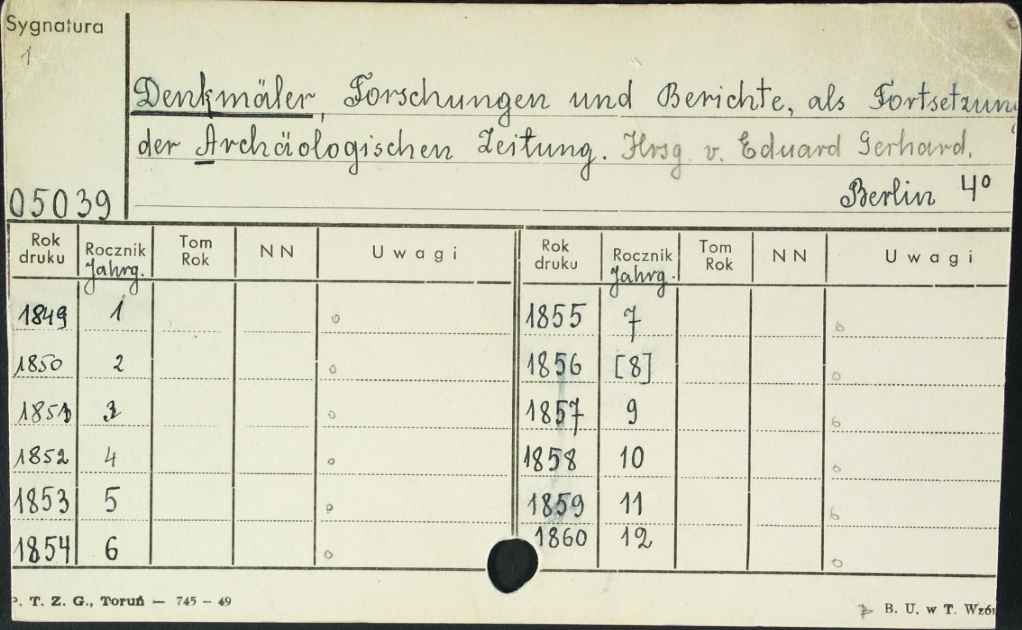 Sygnatura
1
Denkmäler, Forschungen und Berichte, als Fortsetzung
der Archäologischen Zeitung. Hrsg. v. Eduard Gerhard.
Berlin 4º
05039
Rok druku Rocznik Jahrg. Tom Rok NN Uwagi Rok druku Rocznik Jahrg. Tom Rok NN Uwagi
1849 1 o 1855 7 o
1850 2 o 1856 [8] o
1851 3 o 1857 9 o
1852 4 o 1858 10 o
1853 5 o 1859 11 o
1854 6 o 1860 12 o
P. T. Z. G., Toruń — 745 – 49
B. U. w T. Wzór